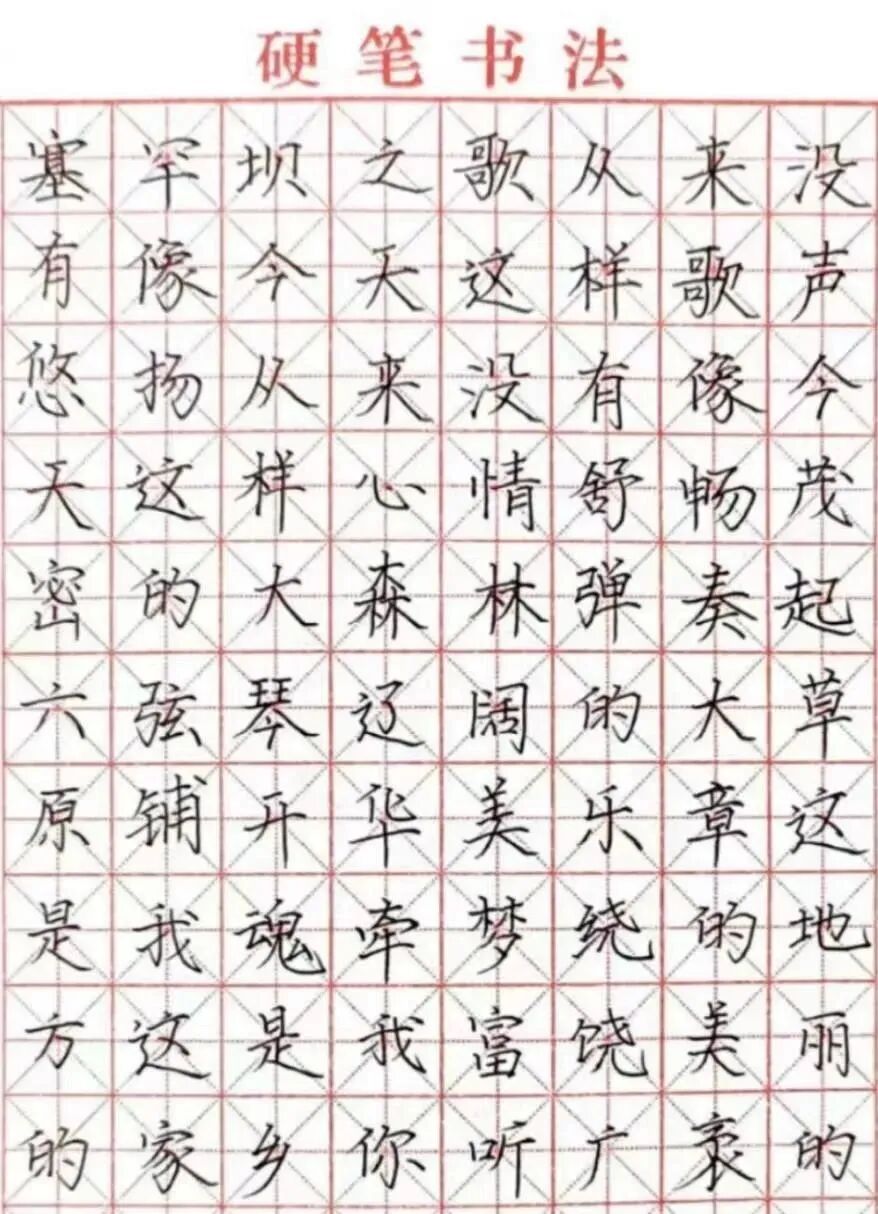 硬笔书法
塞罕坝之歌从来没
有像今天这样歌声
悠扬从来没有像今
天这样心情舒畅茂
密的大森林弹奏起
六弦琴辽阔的大草
原铺开华美乐章这
是我魂牵梦绕的地
方这是我富饶美丽
的家乡你听广袤的